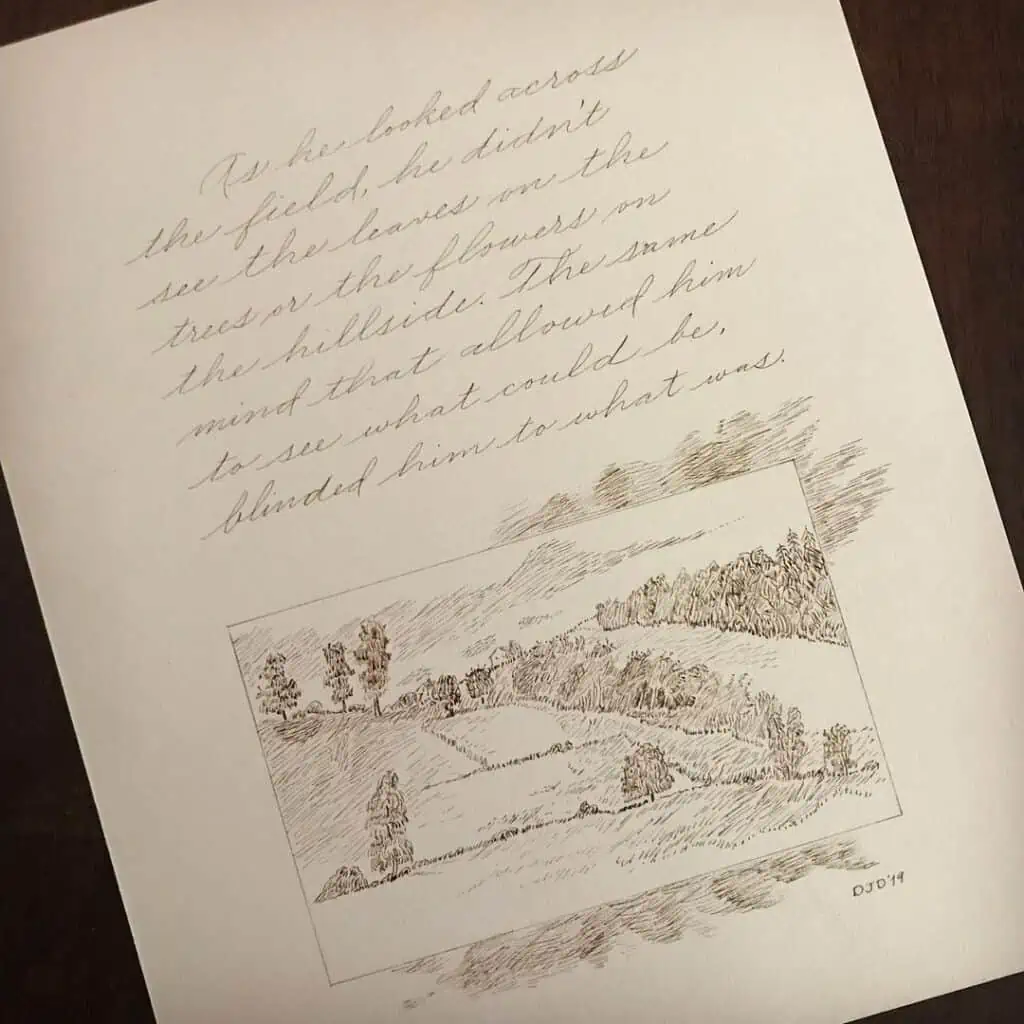 As he looked across
the field, he didn't
see the leaves on the
trees or the flowers on
the hillside. The same
mind that allowed him
to see what could be,
blinded him to what was.
DJD'19